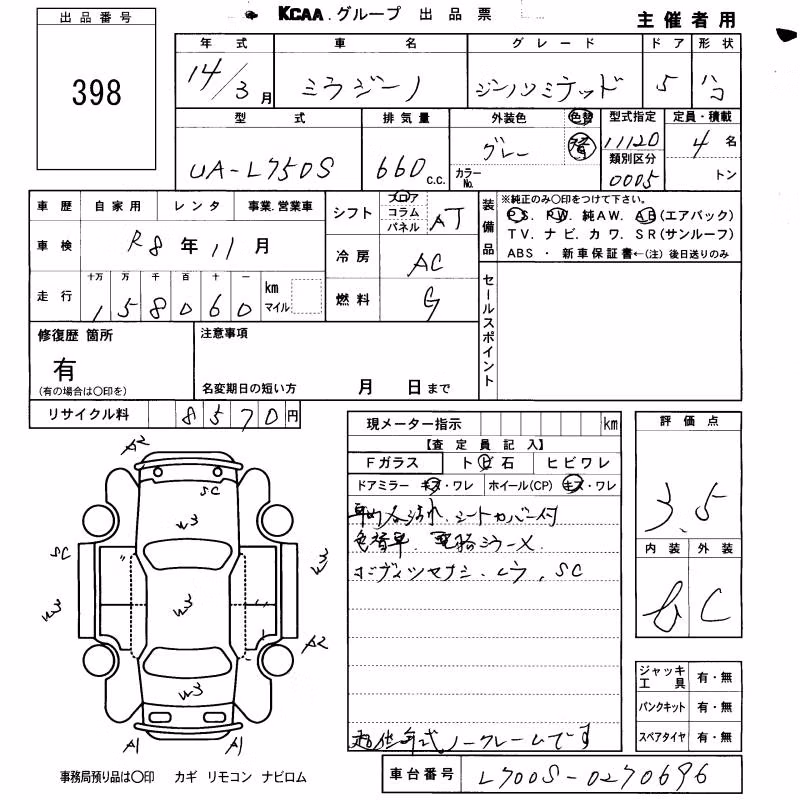 KCAA.グループ 出品票
主催者用
出品番号
398
年式 車名 グレード ドア 形状
14/3月 ミラジーノ ジーノリミテッド 5 ハコ
型式 排気量 外装色 色替 型式指定 定員・積載
UA-L750S 660 C.C. グレー 替 11120 4名
カラーNo. 類別区分 0005 トン
車歴 自家用 レンタ 事業.営業車
車検 R8年11月
走行 十万 万 千 百 十 一 km マイル
158060
シフト フロア コラム パネル AT
冷房 AC
燃料 G
装備品
※純正のみ○印をつけて下さい。
P S. P W. 純AW. A B(エアバック)
T V. ナビ. カワ. S R(サンルーフ)
ABS ・ 新車保証書←(注) 後日送りのみ
セールスポイント
修復歴 箇所
有
(有の場合は○印を)
注意事項
名変期日の短い方 月 日まで
リサイクル料 8570円
現メーター指示 km
【査定員記入】
Fガラス ト ビ 石 ヒビワレ
ドアミラー キズ・ワレ ホイール(CP) キズ・ワレ
シートカバー付
色替車.
SC
ノークレームです
評価点
3.5
内装 外装
C
ジャッキ工具 有・無
パンクキット 有・無
スペアタイヤ 有・無
A2
SC
W3
SC
W3
W3
W3
A2
W3
A1 A1
事務局預り品は○印 カギ リモコン ナビロム
車台番号 L700S-0270696